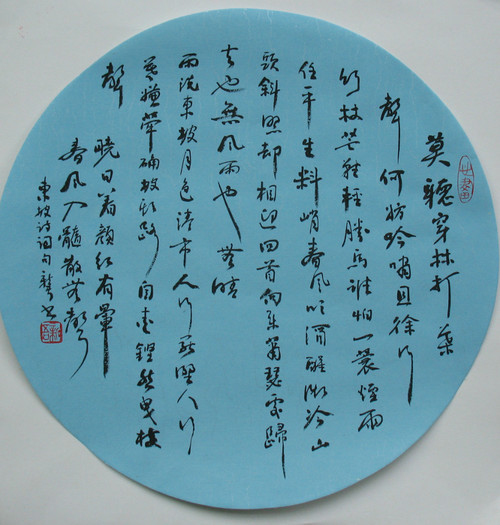 莫聽穿林打葉
聲何妨吟嘯且徐行
竹杖芒鞋輕勝馬誰怕一蓑煙雨
任平生料峭春風吹酒醒微冷山
頭斜照却相迎回首向來蕭瑟處歸
去也無風雨也無晴
雨洗東坡月色清市人行盡野人行
莫嫌犖确坡頭路自愛鏗然曳杖
聲
曉日著顏紅有暈
春風入髓散無聲
東坡詩詞句書